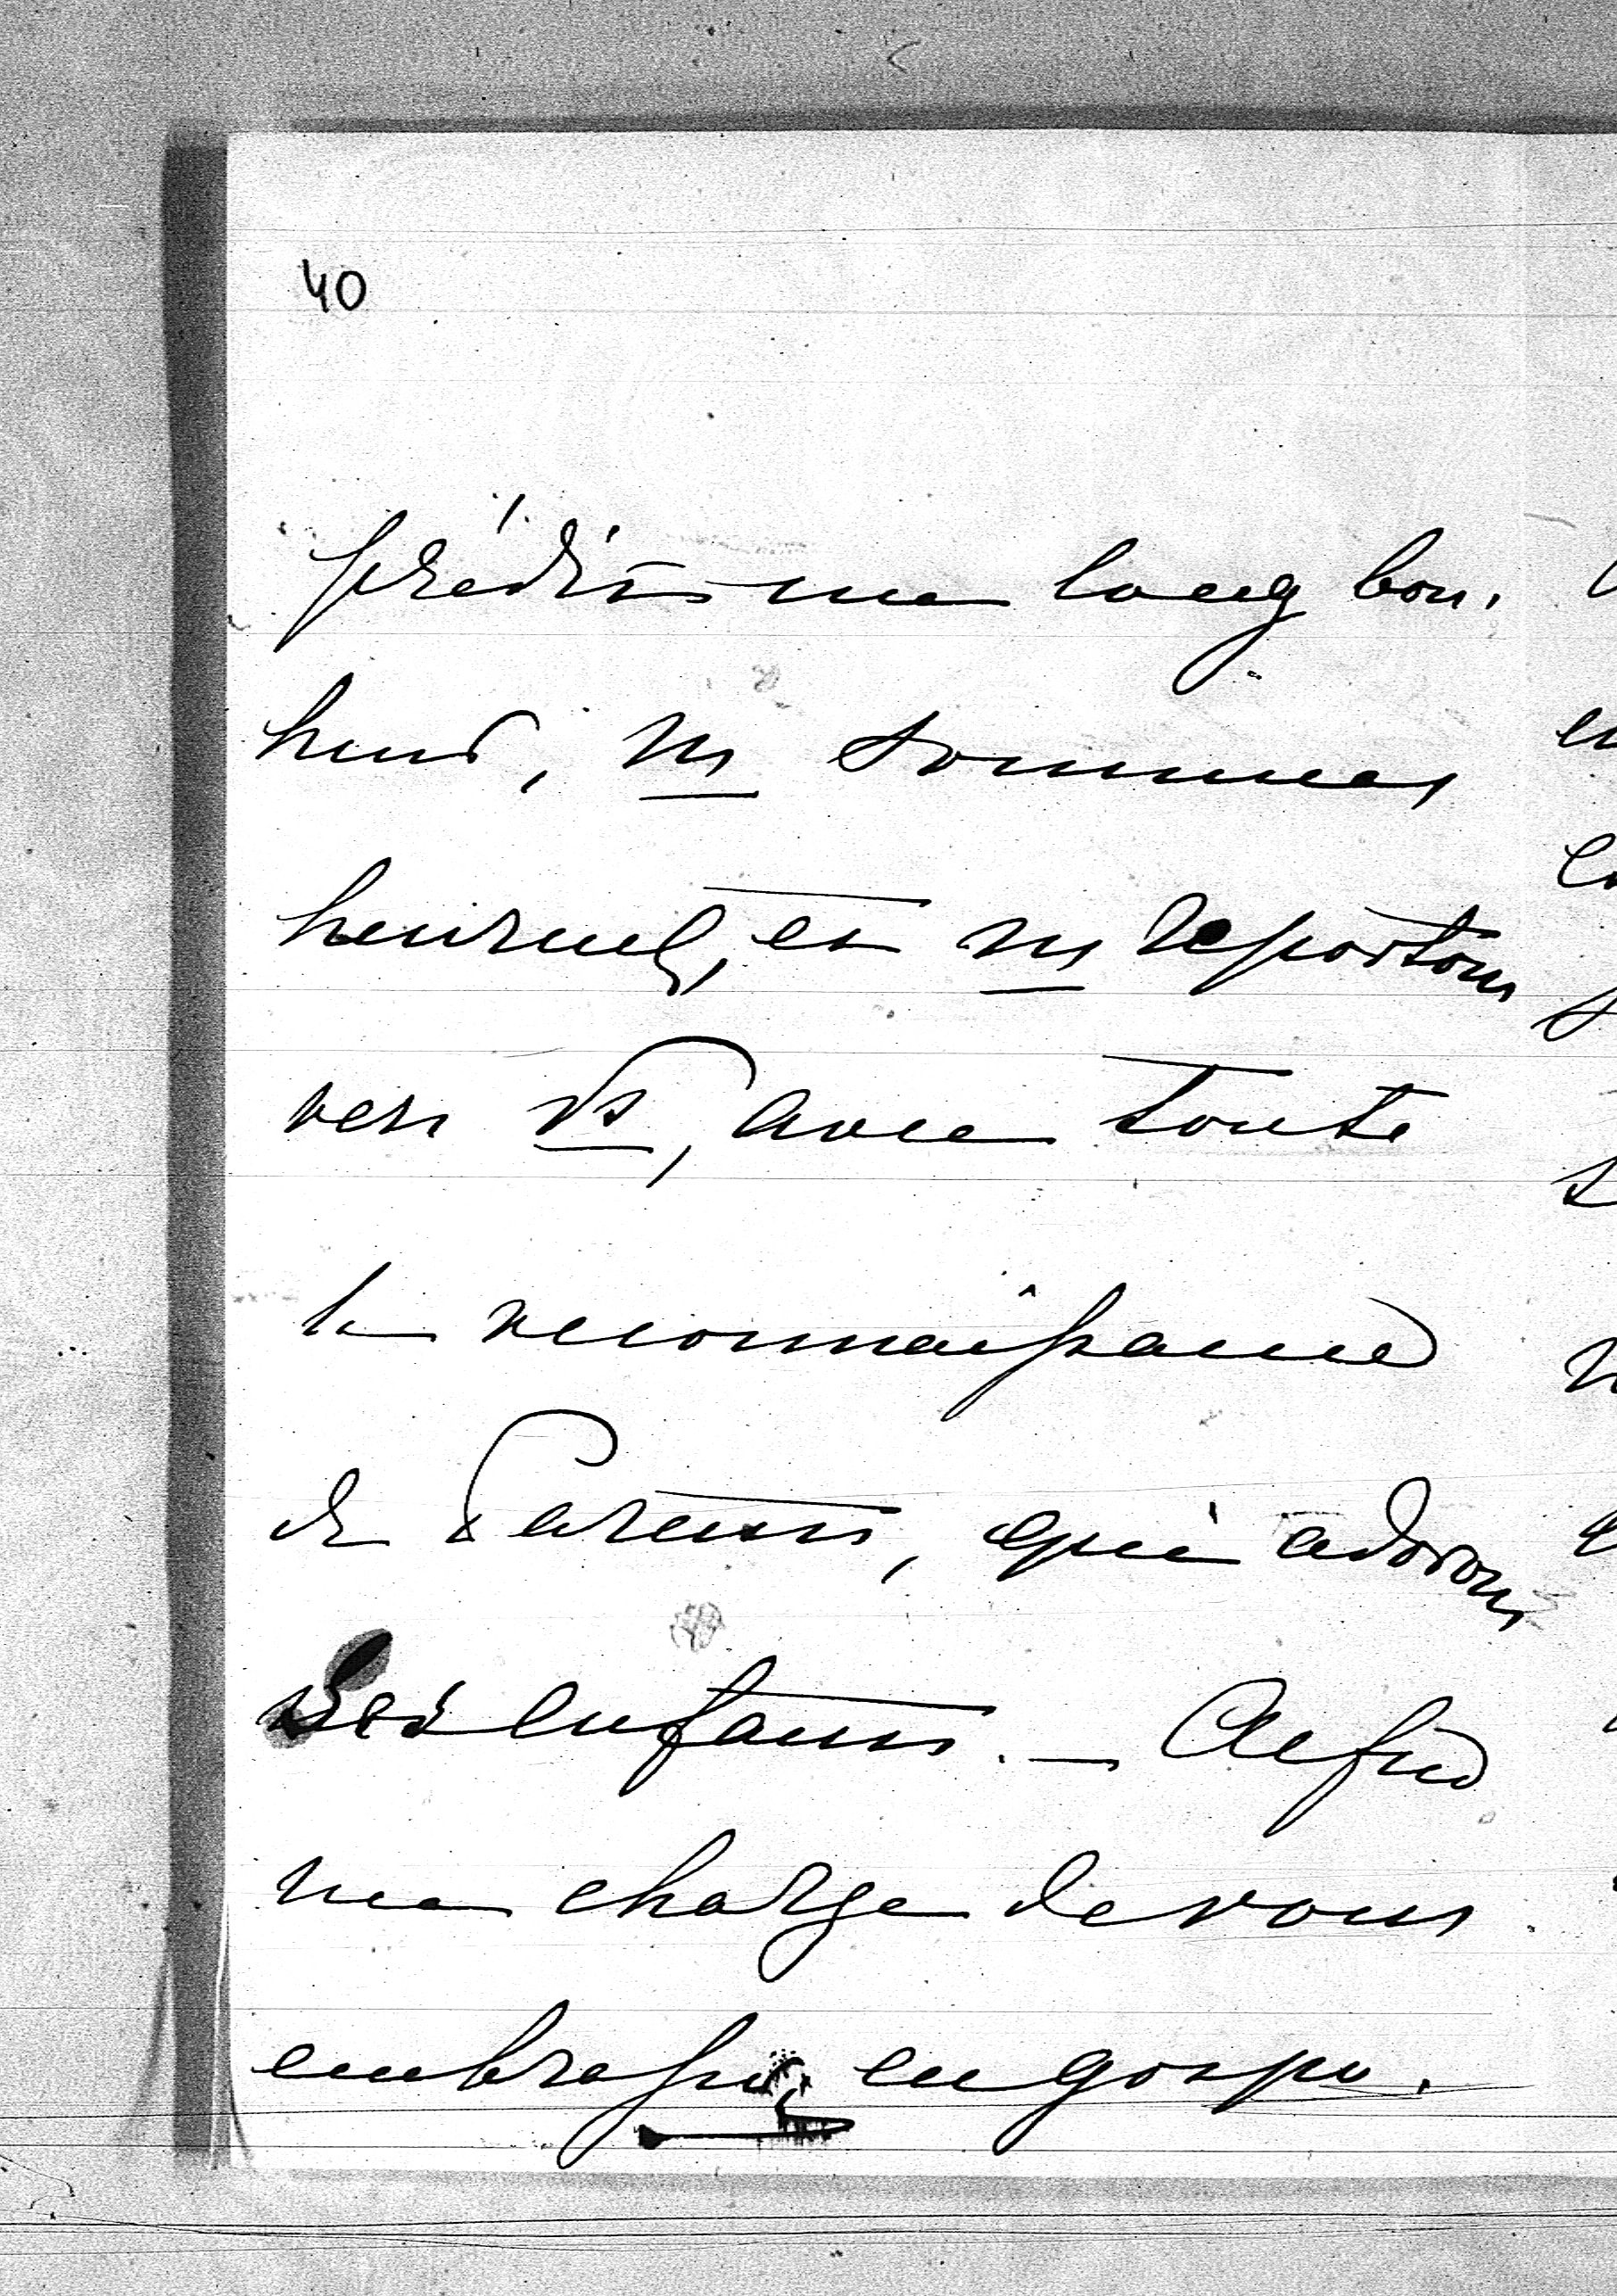 40
prédit un long bon-
heur, ns sommes
heureux, et ns reportons
vers vs, avec toute
la reconnaissance
de Parents, qui adorons
ses enfants. — Alfred
me charge de vous
embrasser, en